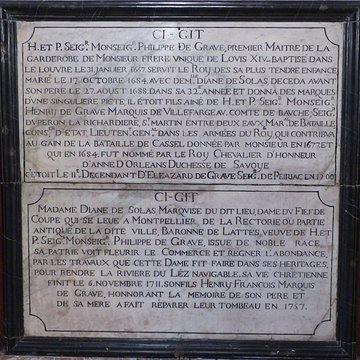 CI-GIT
H. ET P. SEIG.R MONSEIG.R PHILIPPE DE GRAVE, PREMIER MAITRE DE LA
GARDEROBE DE MONSIEUR FRERE VNIQUE DE LOVIS XIV. BAPTISE DANS
LE LOUVRE LE 31 JANVIER 1657. SERVIT LE ROY DES SA PLUS TENDRE ENFANCE
MARIÉ LE 17. OCTOBRE 1684. AVEC DEM.LE DIANE DE SOLAS DECEDA AVANT
SON PERE LE 27. AOUST 1688. DANS SA 32.E ANNÉE ET DONNA DES MARQUES
D'VNE SINGULIERE PIETÉ, IL ÉTOIT FILS AINÉ DE H. ET P. SEIG.R MONSEIG.R
HENRI DE GRAVE MARQUIS DE VILLEFARGEAV, COMTE DE BAVCHE, SEIG.R
DUPERON LA RICHARDIERE, S.T MARTIN ENTRE DEUX EAUX MAR.L DE BATAILLE
CONS.R D'ÉTAT, LIEUTEN.T GEN.AL DANS LES ARMÉES DU ROY, QUI CONTRIBVA
AU GAIN DE LA BATAILLE DE CASSEL DONNÉE PAR MONSIEUR EN 1677. ET
QUI EN 1684. FUT NOMMÉ PAR LE ROY CHEVALIER D'HONNEUR
D'ANNE D'ORLEANS DUCHESSE DE SAVOYE
C'ÉTOIT LE 11.E DECENDANT D'ELEAZARD DE GRAVE SEIG.R DE PEIRIAC EN 1300
CI-GIT
MADAME DIANE DE SOLAS MARQVISE DU DIT LIEU, DAME DV FIEF DE
COUPE QUI SE LEUE A MONTPELLIER, DE LA RECTORIE OU PARTIE
ANTIQUE DE LA DITE VILLE, BARONNE DE LATTES, VEUVE DE H. ET
P. SEIG.R MONSEIG.R PHILIPPE DE GRAVE, ISSUE DE NOBLE RACE,
SA PATRIE VOIT FLEURIR LE COMMERCE ET REGNER L'ABONDANCE,
PAR LES TRAVAUX QUE CETTE DAME FIT FAIRE DANS SES HERITAGES,
POUR RENDRE LA RIVIERE DU LÉZ NAVIGABLE, SA VIE CHRÉTIENNE
FINIT LE 6. NOVEMBRE 1711. SON FILS HENRY FRANCOIS MARQUIS
DE GRAVE, HONNORANT LA MEMOIRE DE SON PERE ET
DE SA MERE A FAIT REPARER LEUR TOMBEAU EN 1757.